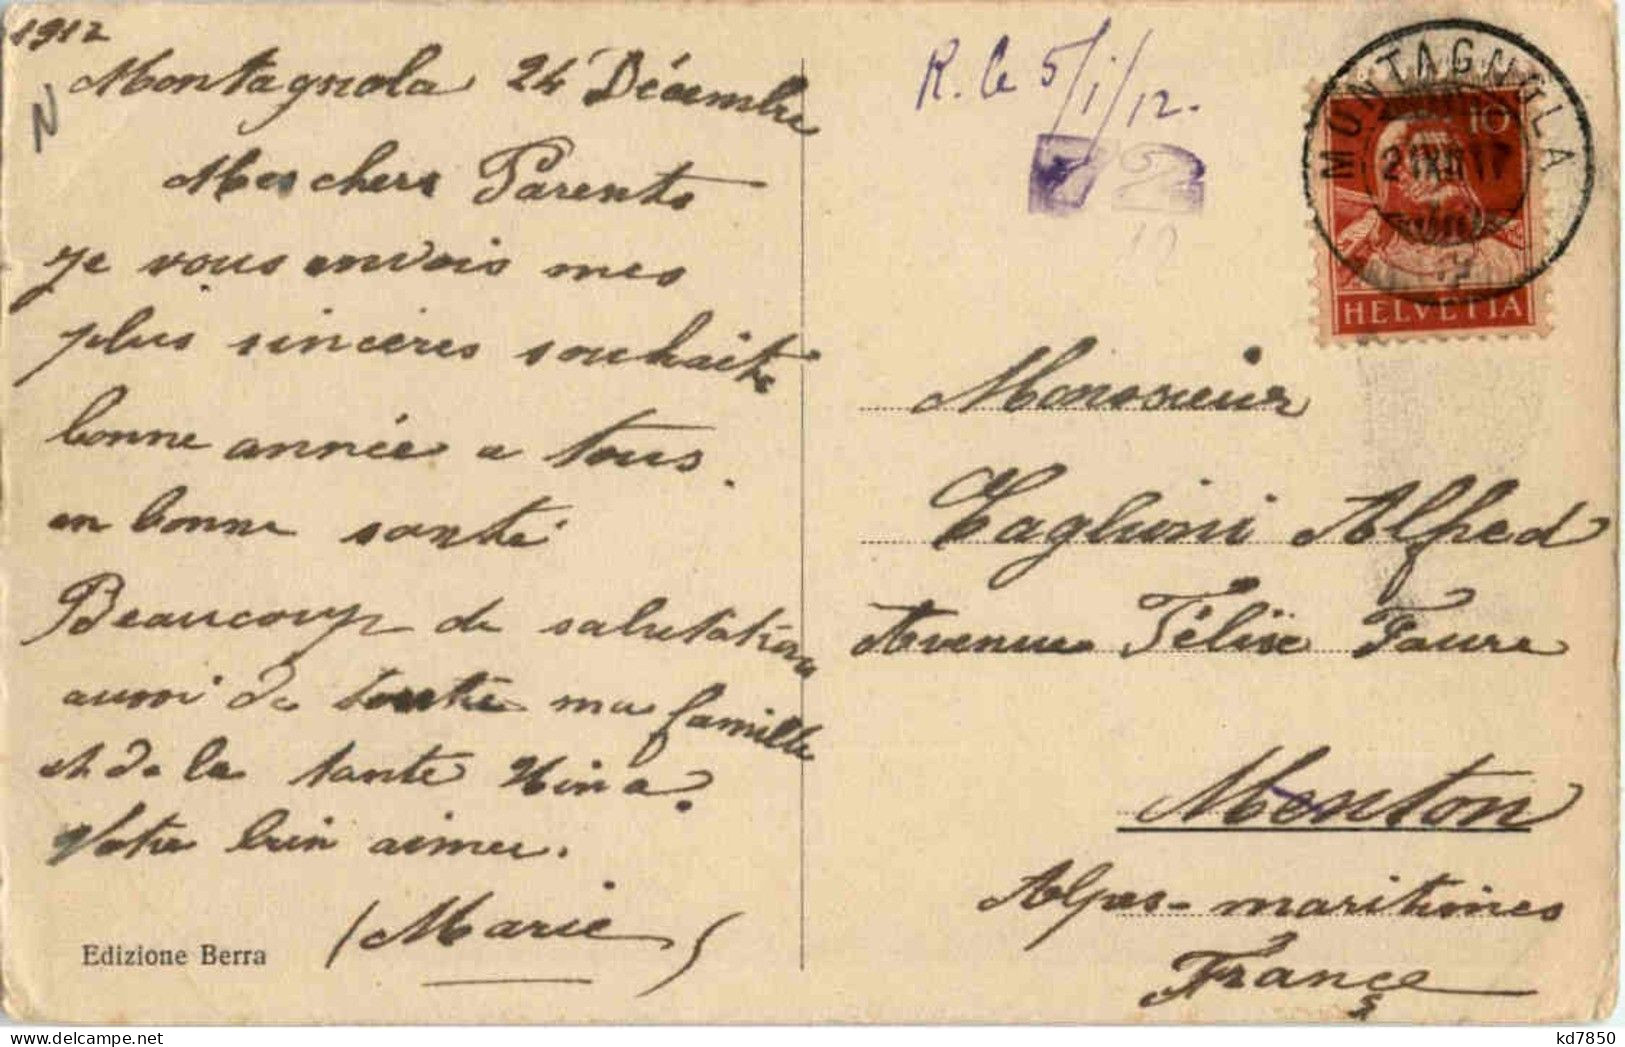 1912
Montagnola 24 Décembre
N
Mes chers Parents
je vous envois mes
plus sincères souhaits
bonne année a tous.
en bonne santé
Beaucoup de salutations
aussi de toute ma famille
et de la tante Nina.
Votre bien aimee.
(Marie)
Edizione Berra
R. le 5/1/12.
22
12
MONTAGNOLA
21 XII 17
10
HELVETIA
Monsieur
Taglioni Alfred
Avenue Félix Faure
Menton
Alpes-maritimes
France
kd7850